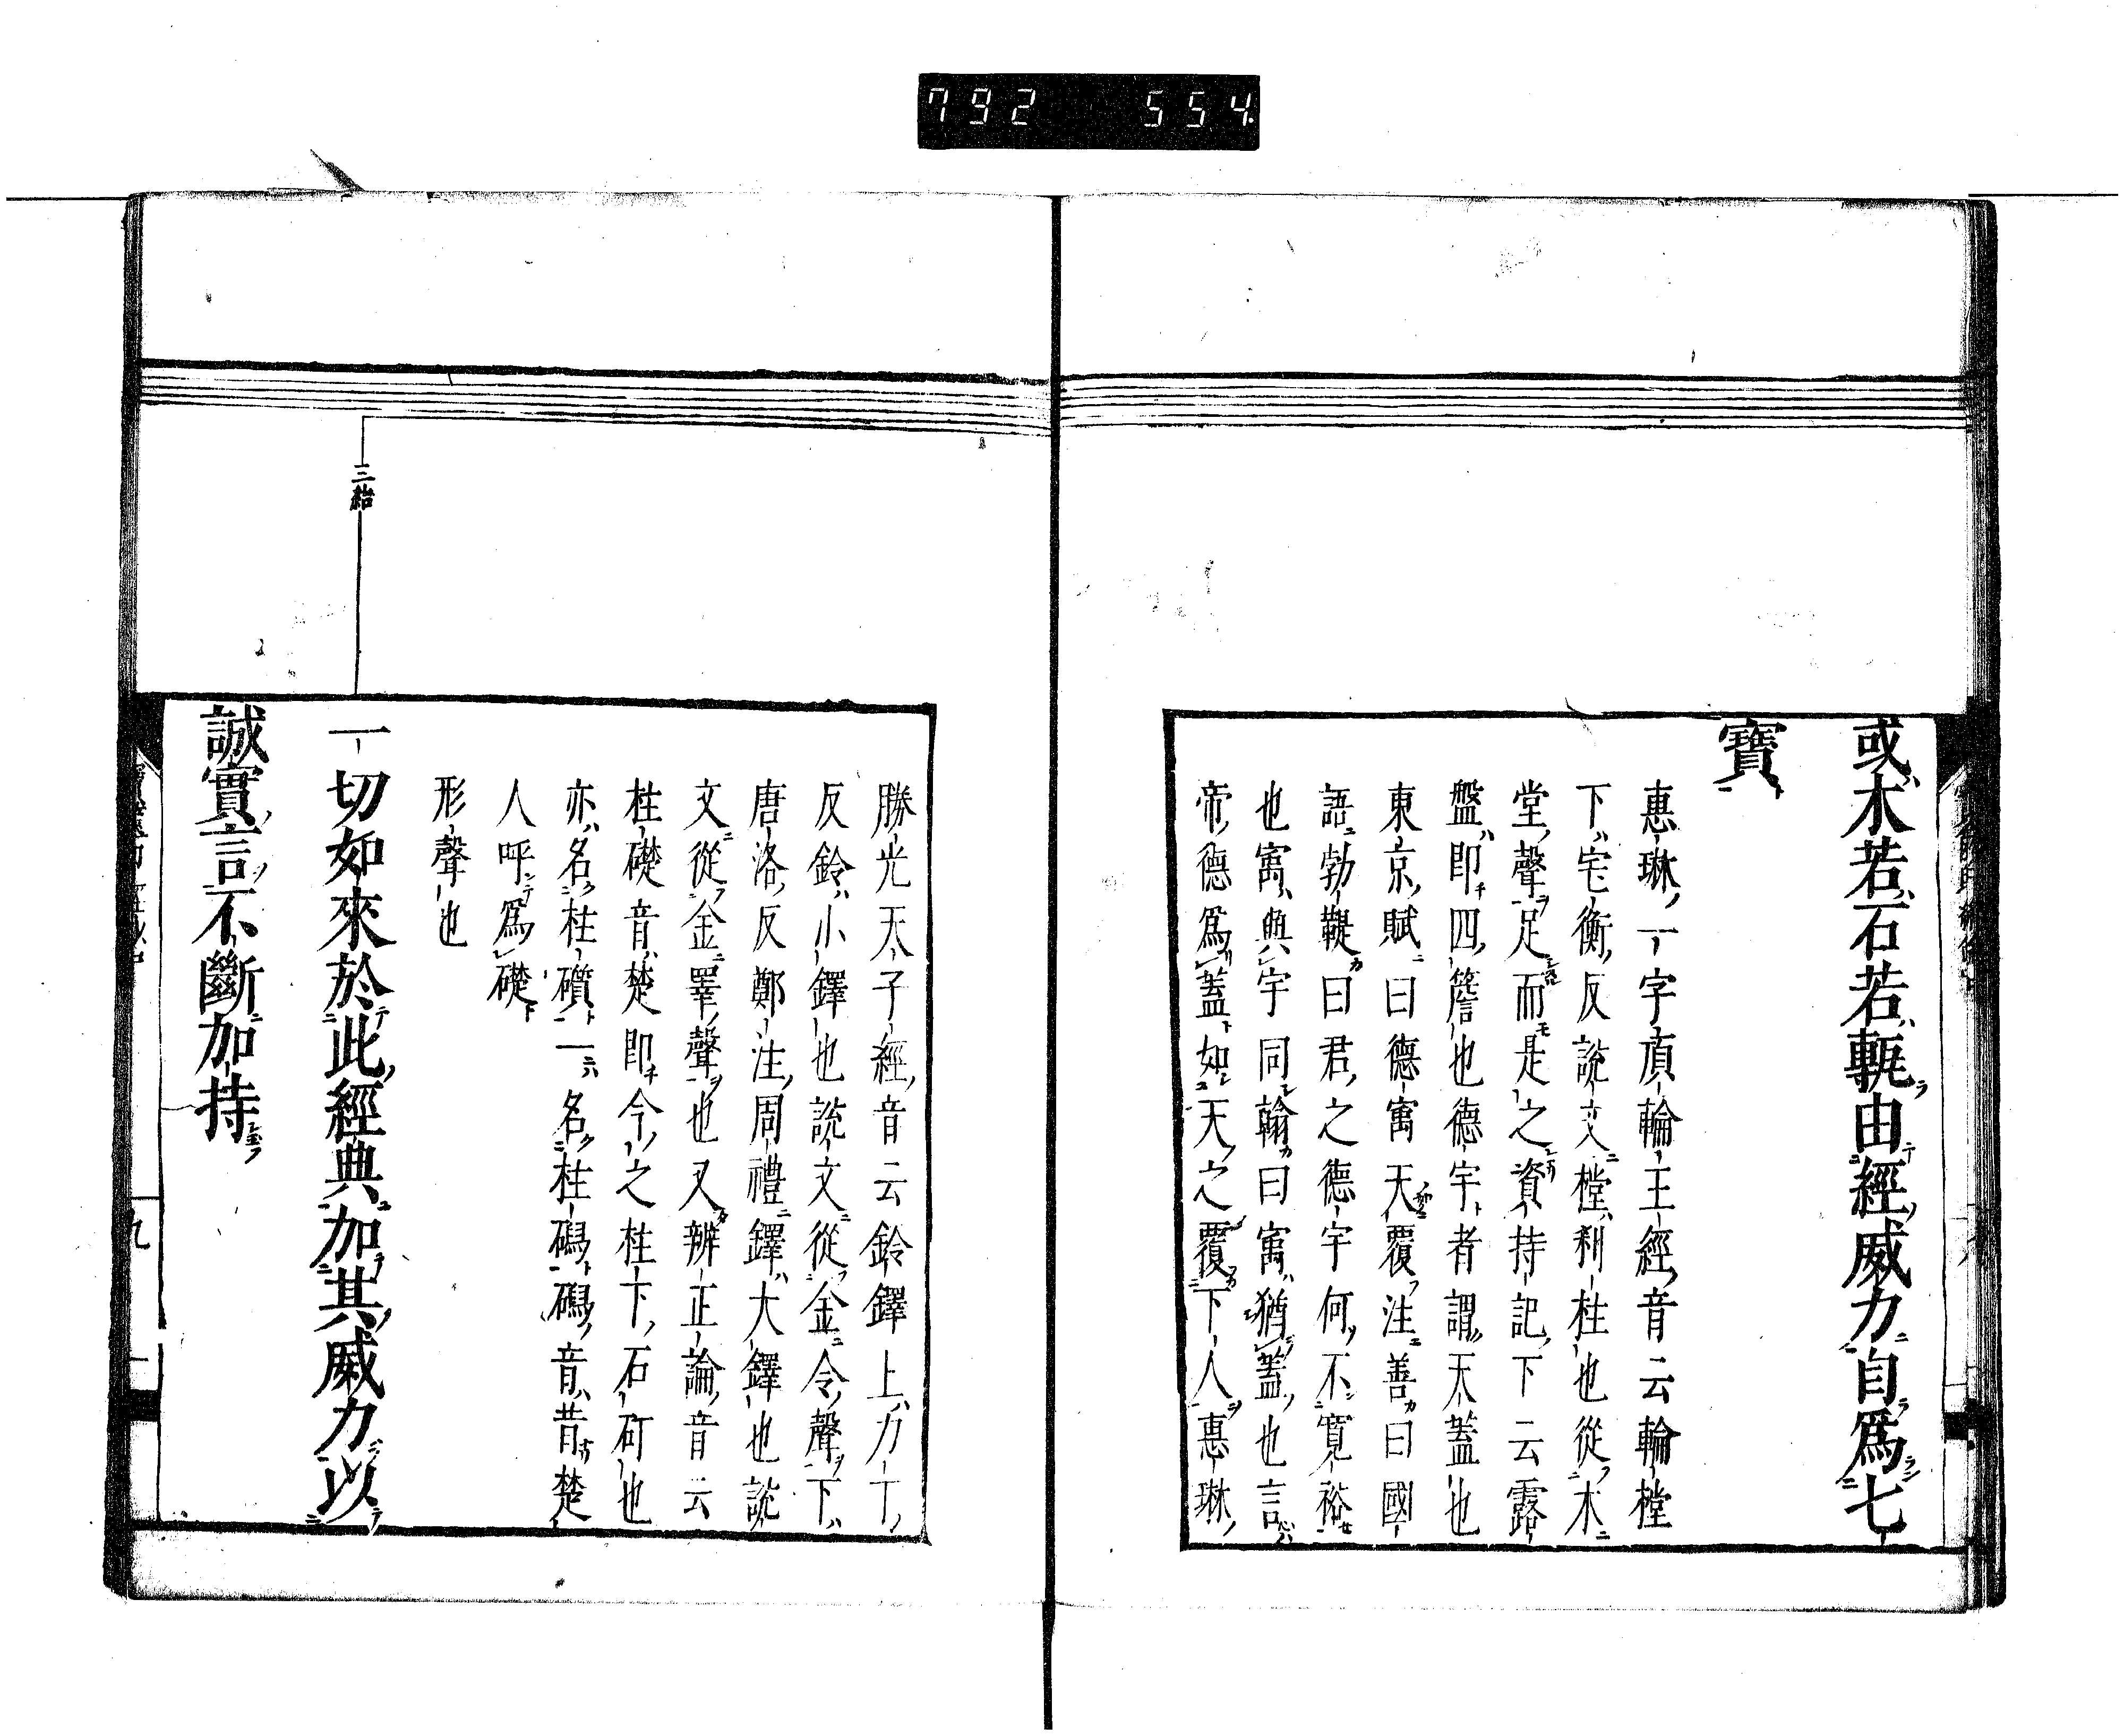 792 554.
或木若石若甎由經威力自爲七
寶
惠琳一字頂輪王經音云輪樘
下宅衡反說文樘刹柱也從木
堂聲足而是之資持記下云露
盤即四簷也德宇者謂天蓋也
東京賦曰德㝢天覆注善曰國
語勃鞮曰君之德宇何不寬裕
也㝢與宇同翰曰㝢猶蓋也言
帝德爲蓋如天之覆下人惠琳
勝光天子經音云鈴鐸上力丁
反鈴小鐸也說文從金令聲下
唐洛反鄭注周禮鐸大鐸也說
文從金睪聲也又辨正論音云
柱礎音楚即今之柱下石矴也
亦名柱礩一名柱碣碣音昔楚
人呼爲礎
形聲也
三結
一切如來於此經典加其威力以
誠實言不斷加持
九